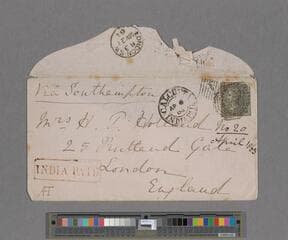 LONDON
Via Southampton
CALCUTTA
Mrs H. T. Holland
No 20
25 Rutland Gate
April
INDIA PAID
London
England